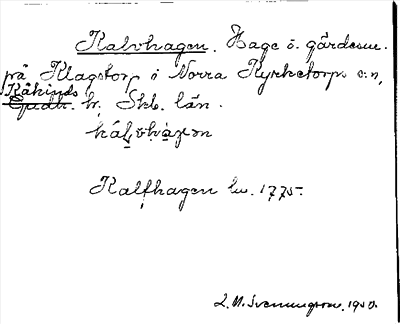 Kalvhagen. Hage ö. gärdesur.
på Klagstorp i Norra Kyrketorps sn,
Kåkinds
hd. Skb. län.
kálvhàgən
Kalfhagen lm. 1775.
L. M. Svenungsson. 1930.